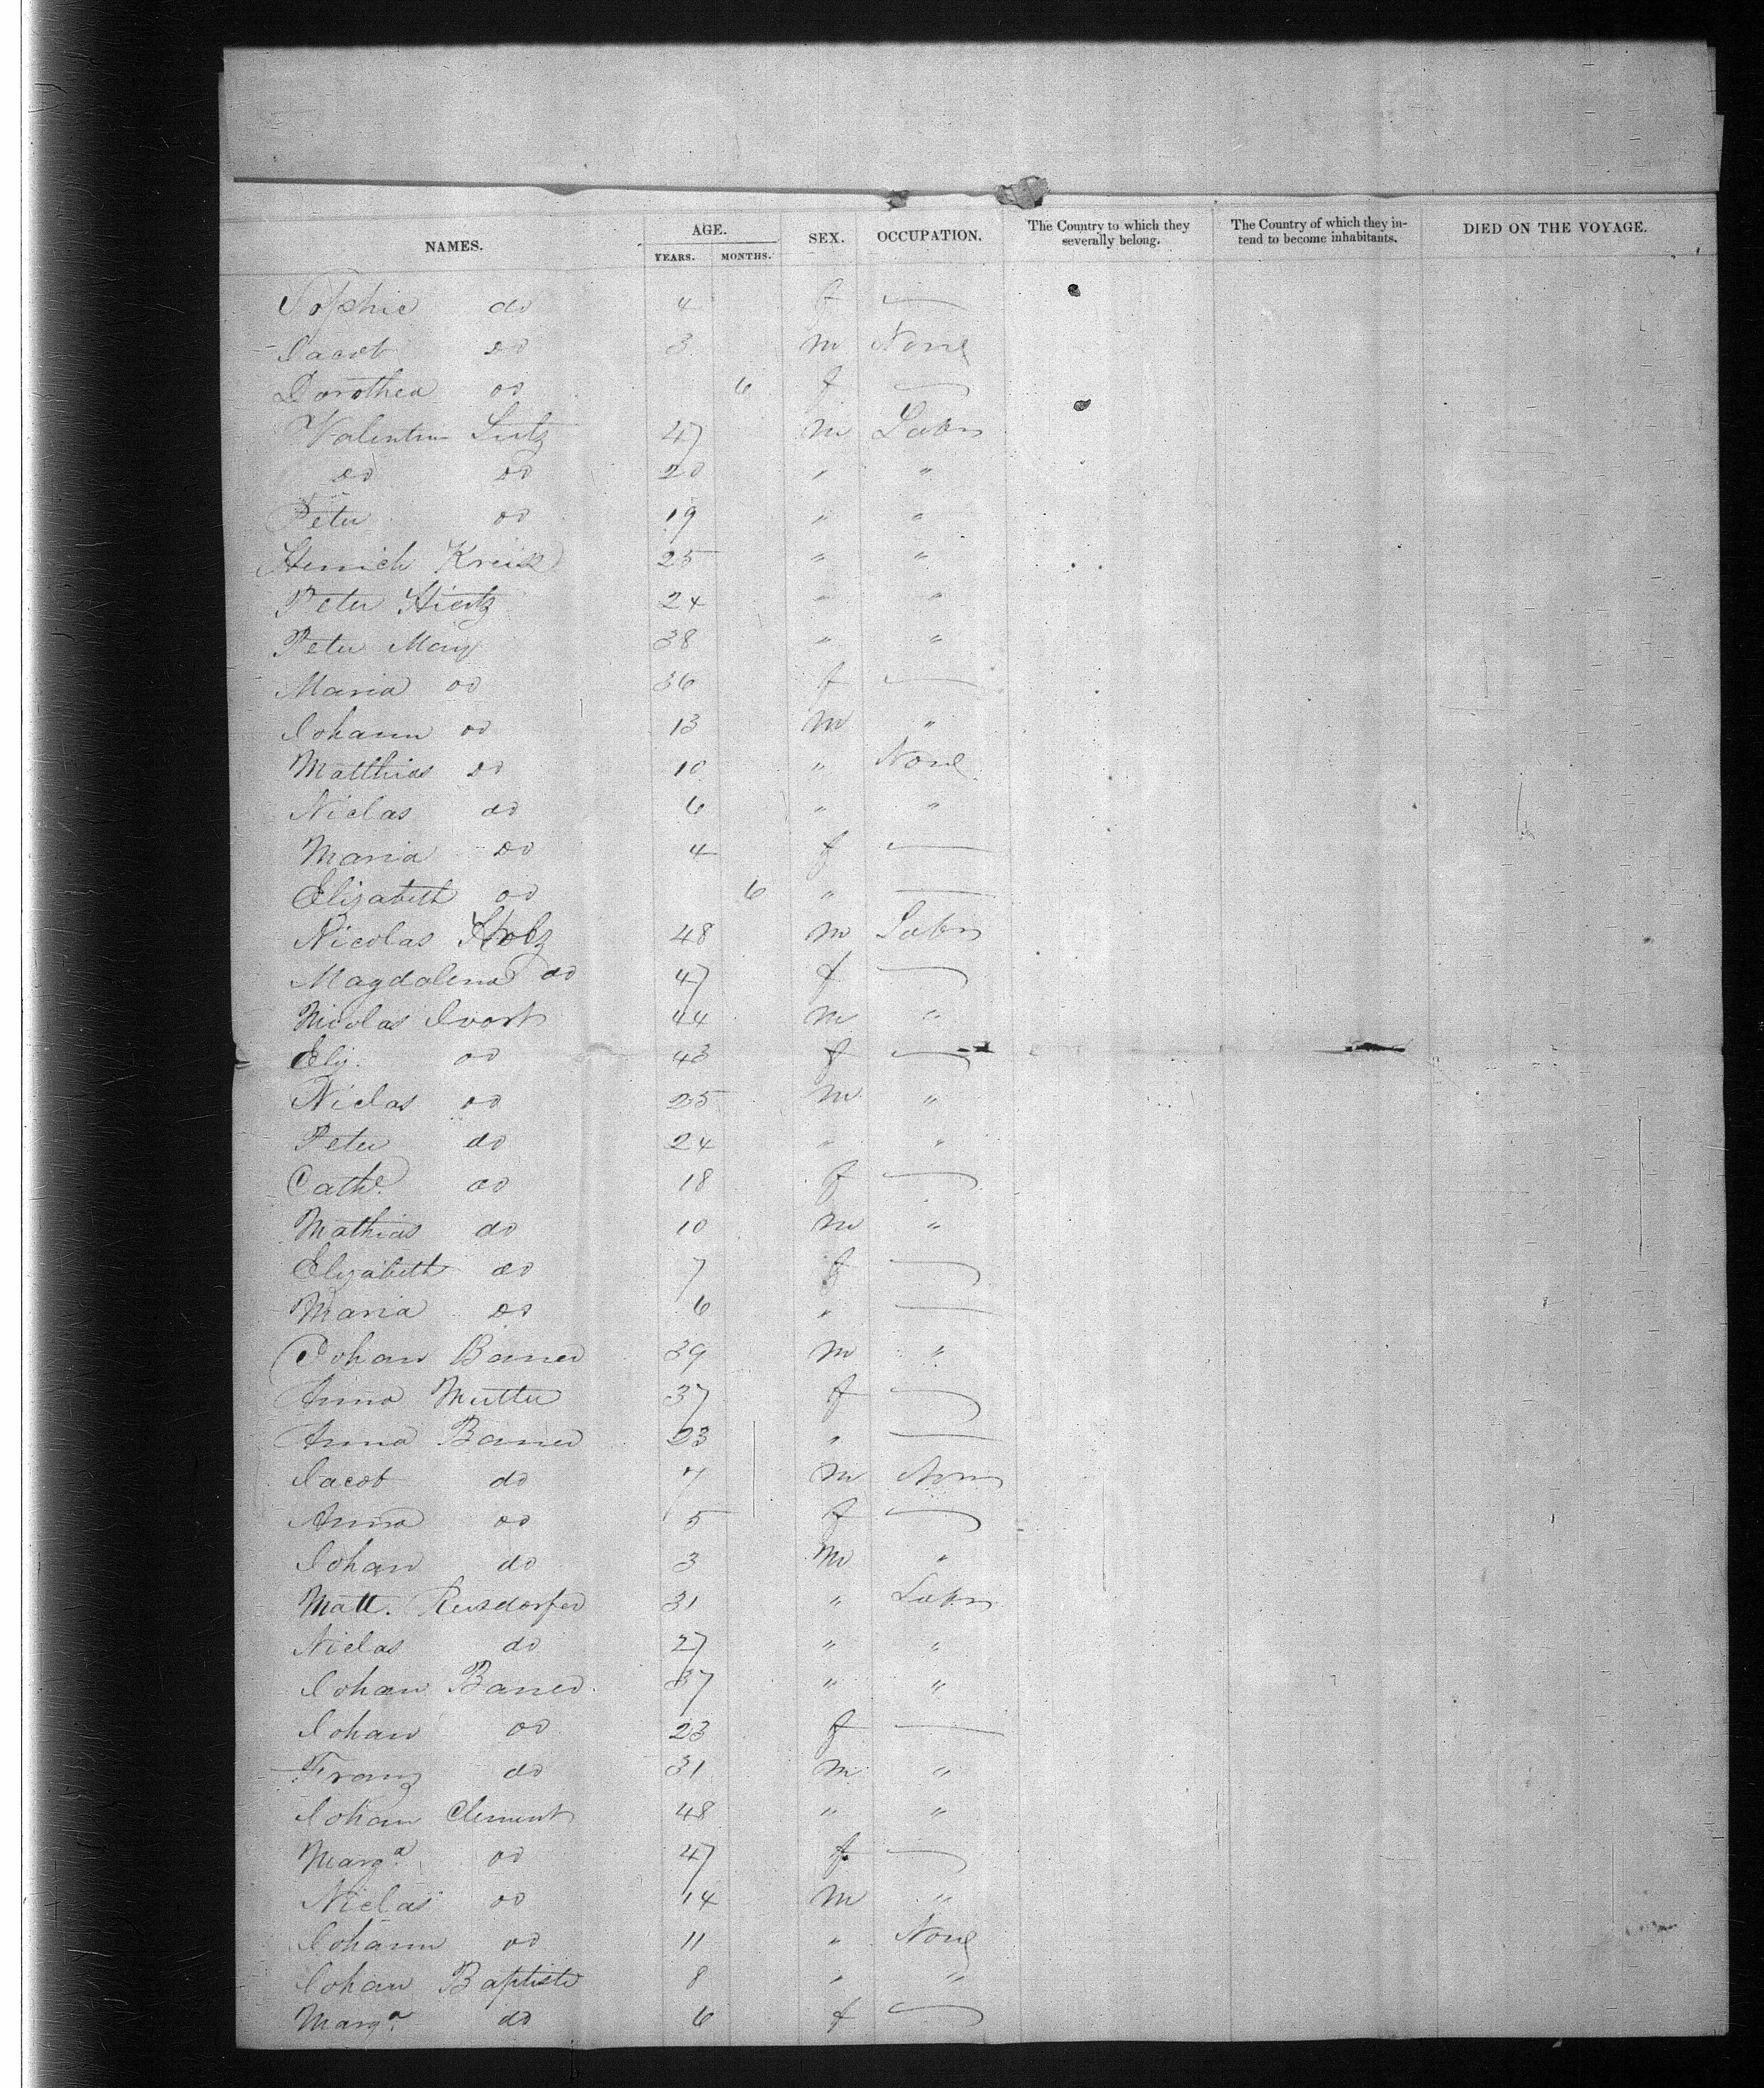 NAMES. AGE. YEARS. MONTHS. SEX. OCCUPATION. The Country to which they severally belong. The Country of which they intend to become inhabitants. DIED ON THE VOYAGE.
Sophie do 4 f —
Jacob do 3 m None
Dorothea do 6 f —
Valentin Lutz 47 m Labr
do do 20 " "
Peter do 19 " "
Henrich 25 " "
Peter Hientz 24 " "
Peter May 38 " "
Maria do 36 f —
Johann do 13 m "
Matthias do 10 " None
Niclas do 6 " "
Maria do 4 f —
Elizabeth do 6 " —
Nicolas Holz 48 m Labr
Magdalena do 47 f —
Nicolas 44 m "
Eliz. do 43 f —
Niclas do 25 m "
Peter do 24 " "
Cathe. do 18 f —
Mathias do 10 m "
Elizabeth do 7 f —
Maria do 6 " —
Johan Bauer 39 m "
Anna Mutter 37 f —
Anna Bauer 23 " —
Jacob do 7 m None
Anna do 5 f —
Johan do 3 m "
Matt. Reusdorfer 31 " Labr
Niclas do 27 " "
Johan Bauer. 37 " "
Johan do 23 f —
Franz do 31 m "
Johan Clement 48 " "
Marga. do 47 f —
Niclas do 14 m "
Johann do 11 " None
Johan Baptiste 8 " "
Marga. do 6 f —